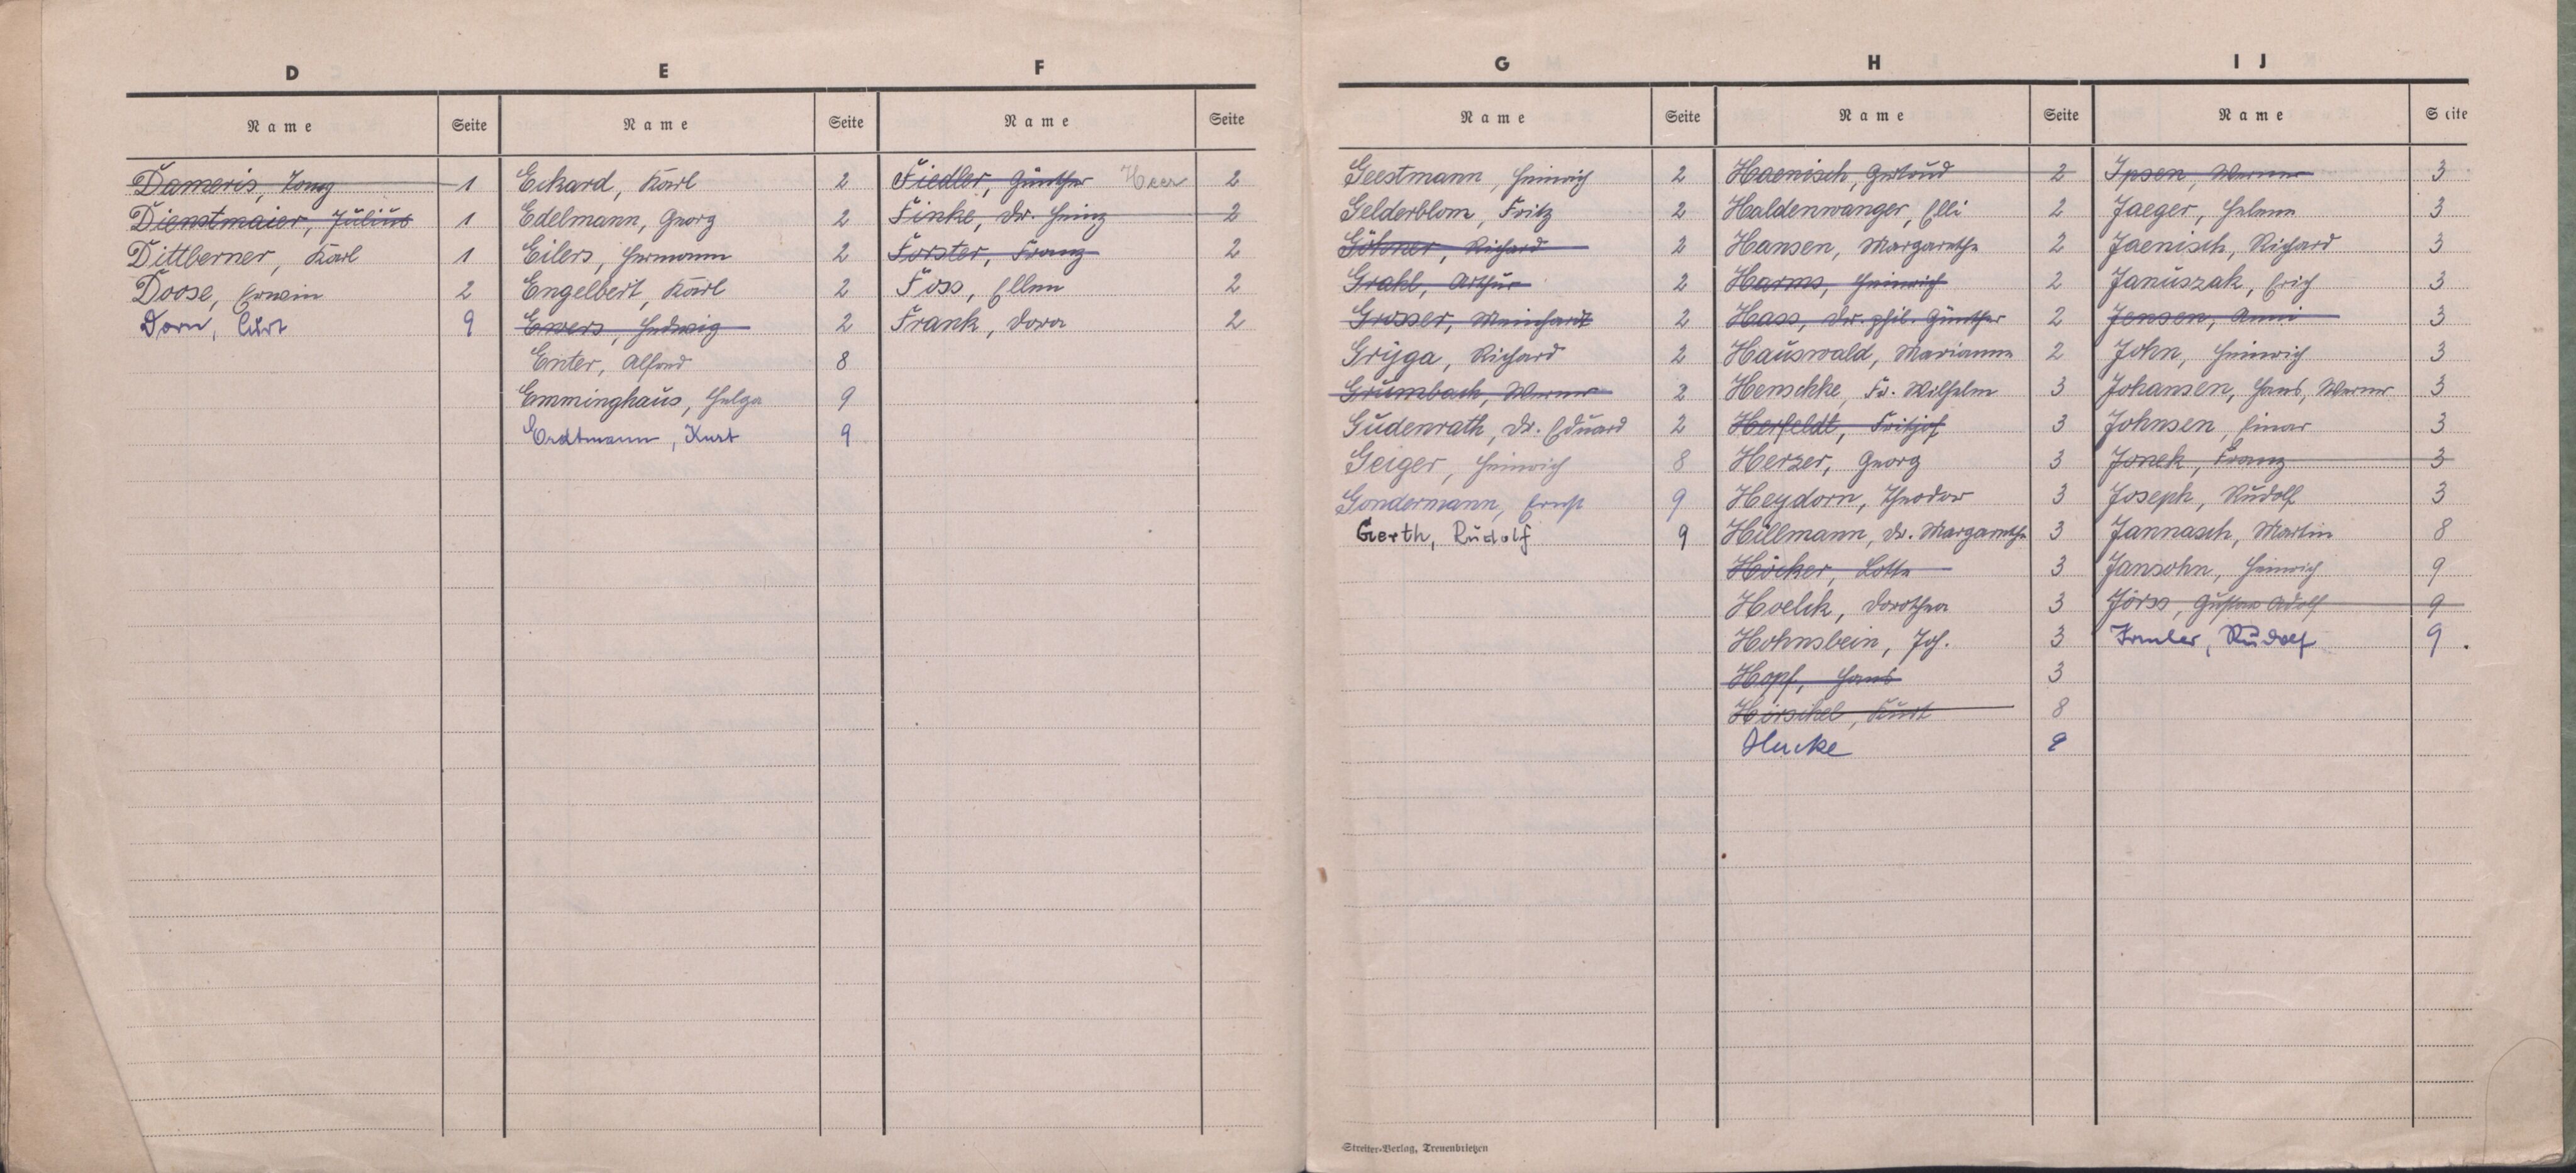 D
Name Seite
Dameris, 1
Dienstmaier, Julius 1
Dittberner, Karl 1
Doose, Erwin 2
Dorn, Curt 9
E
Name Seite
Eckard, Karl 2
Edelmann, Georg 2
Eilers, Hermann 2
Engelbert, Karl 2
Ewers, Hedwig 2
Enter, Alfred 8
Emminghaus, Helga 9
Erdtmann, Kurt 9
F
Name Seite
Fiedler, Günther Heer 2
Finke, Dr. Heinz 2
Forster, Franz 2
Foss, Ellen 2
Frank, Dora 2
G
Name Seite
Geestmann, Heinrich 2
Gelderblom, Fritz 2
Richard 2
Grahl, Arthur 2
Grosser, Meinhardt 2
Gryga, Richard 2
Grumbach, Werner 2
Gudenrath, Dr. Eduard 2
Geiger, Heinrich 8
Gondermann, Ernst 9
Gerth, Rudolf 9
H
Name Seite
Haenisch, Gertrud 2
Haldenwanger, Elli 2
Hansen, Margarethe 2
Harms, Heinrich 2
Hass, Dr. phil. Günther 2
Hauswald, Marianne 2
Henschke, Fr. Wilhelm 3
Herfeldt, Fritjof 3
Herzer, Georg 3
Heydorn, Theodor 3
Hillmann, Dr. Margarethe 3
Höcker, Lotte 3
Hoelck, Dorothea 3
Hohnsbein, Joh. 3
Hopf, Hans 3
Hörschel, Kurt 8
Hucke 9
I J
Name Seite
Ipsen, Werner 3
Jaeger, Helene 3
Jaenisch, Richard 3
Januszak, Erich 3
Jensen, Anni 3
John, Heinrich 3
Johansen, Hans, Werner 3
Johnsen, Einar 3
Jonek, Franz 3
Joseph, Rudolf 3
Jannasch, Martin 8
Jansohn, Heinrich 9
Jörss, Gustav Adolf 9
Irmler, Rudolf 9
Streiter-Verlag, Treuenbrietzen